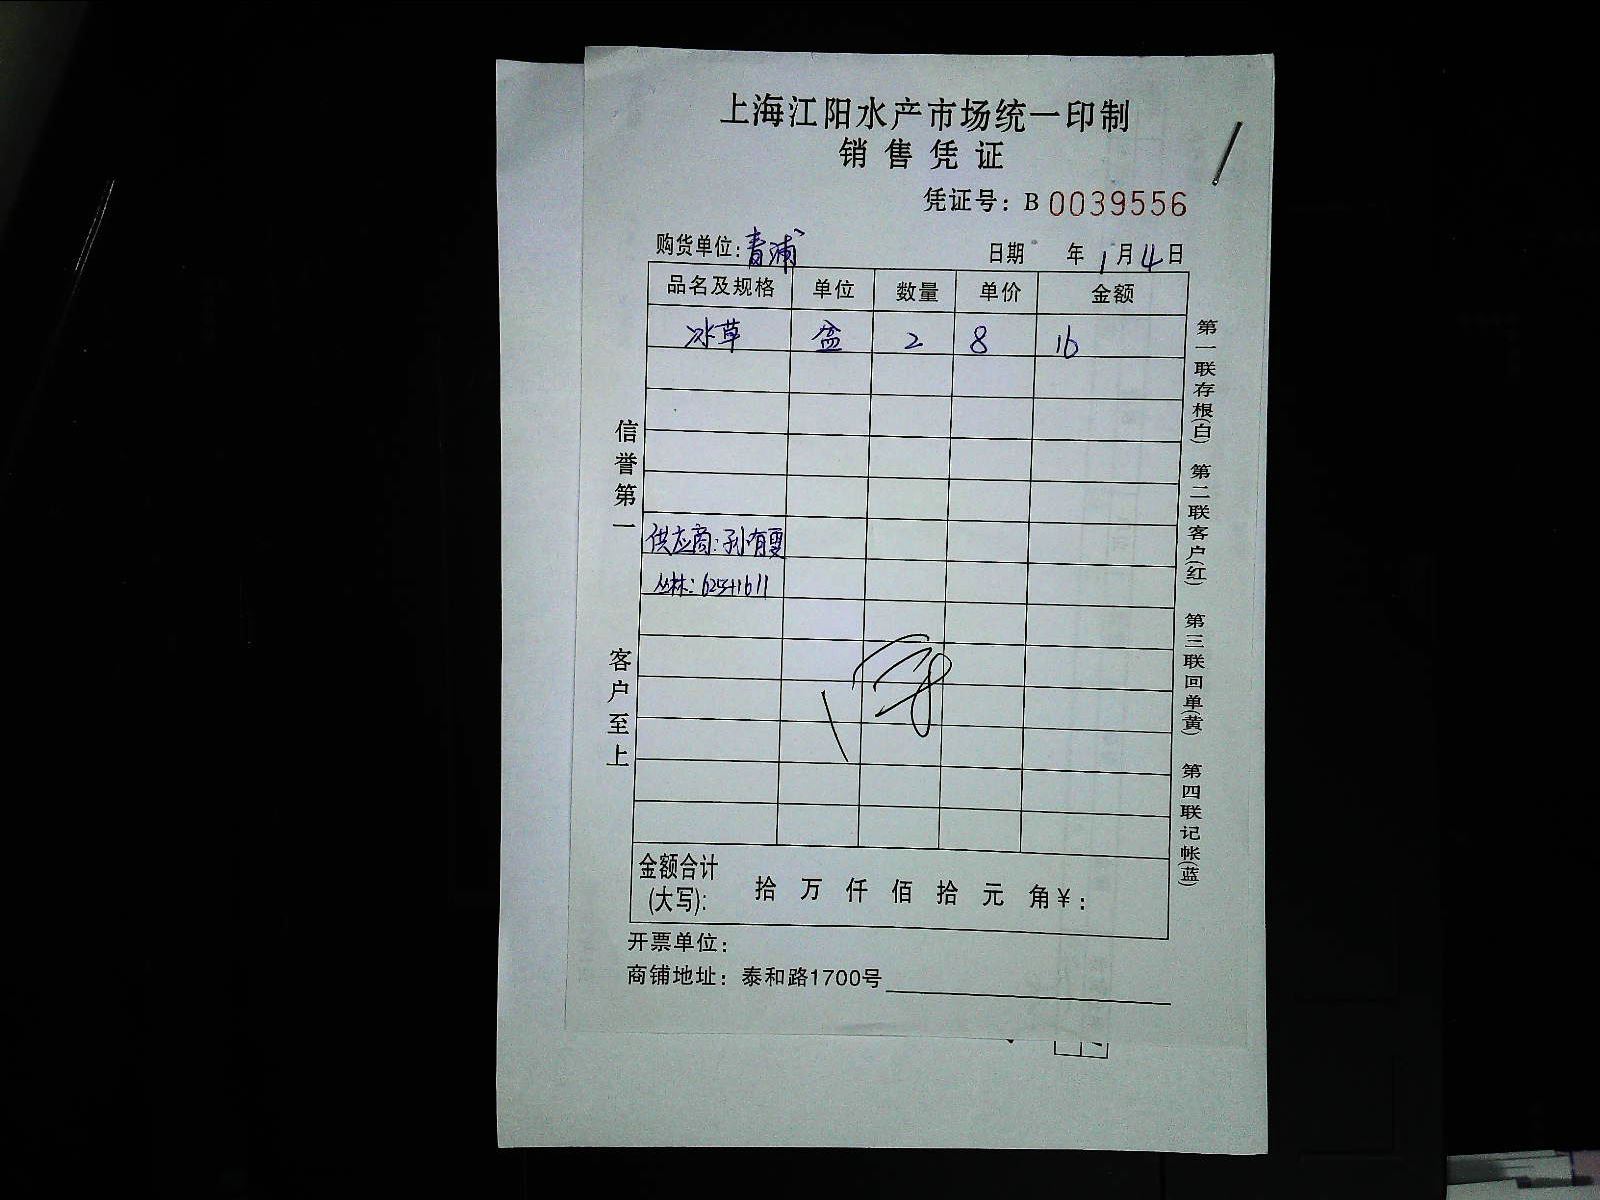 上海江阳水产市场统一印制
销售凭证
凭证号：B 0039556
购货单位：青浦
日期 年1月4日
品名及规格 单位 数量 单价 金额
冰草 盒 2 8 16
供应商：孙有雯
丛林：
信誉第一 客户至上
第一联存根(白) 第二联客户(红) 第三联回单(黄) 第四联记帐(蓝)
金额合计
(大写)： 拾 万 仟 佰 拾 元 角 ¥：
开票单位：
商铺地址：泰和路1700号